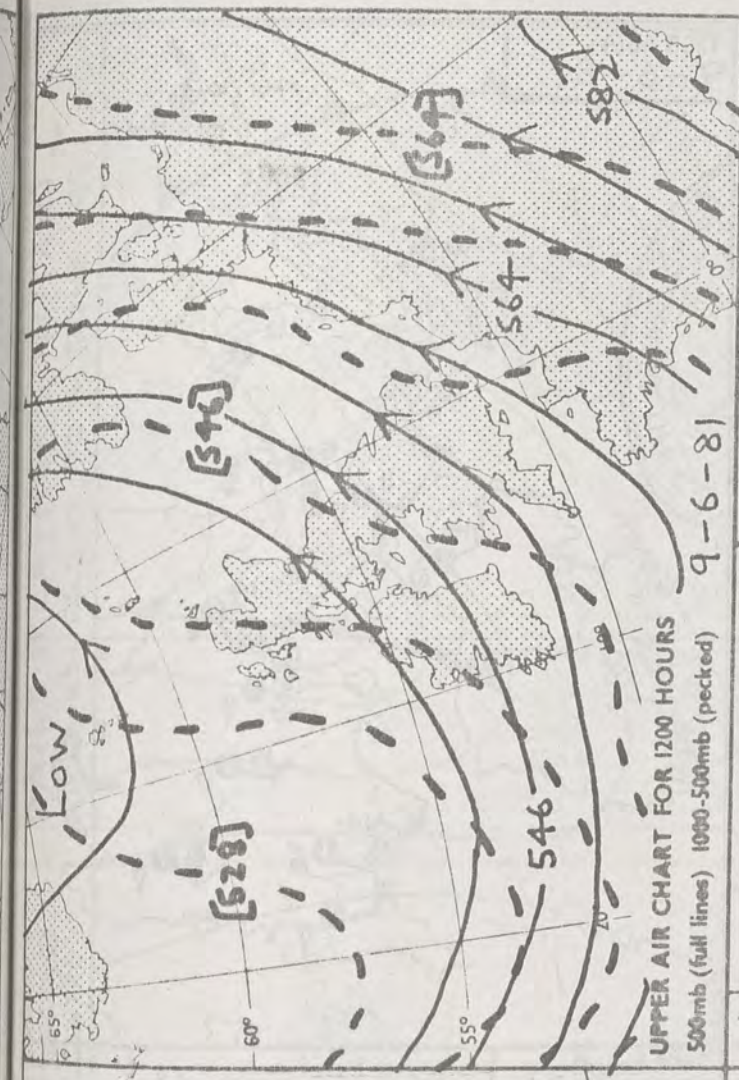 Low
65°
[546]
[564]
582
[528]
60°
564
546
55°
20
0
UPPER AIR CHART FOR 1200 HOURS
500mb (full lines) 1000-500mb (pecked)
9-6-81